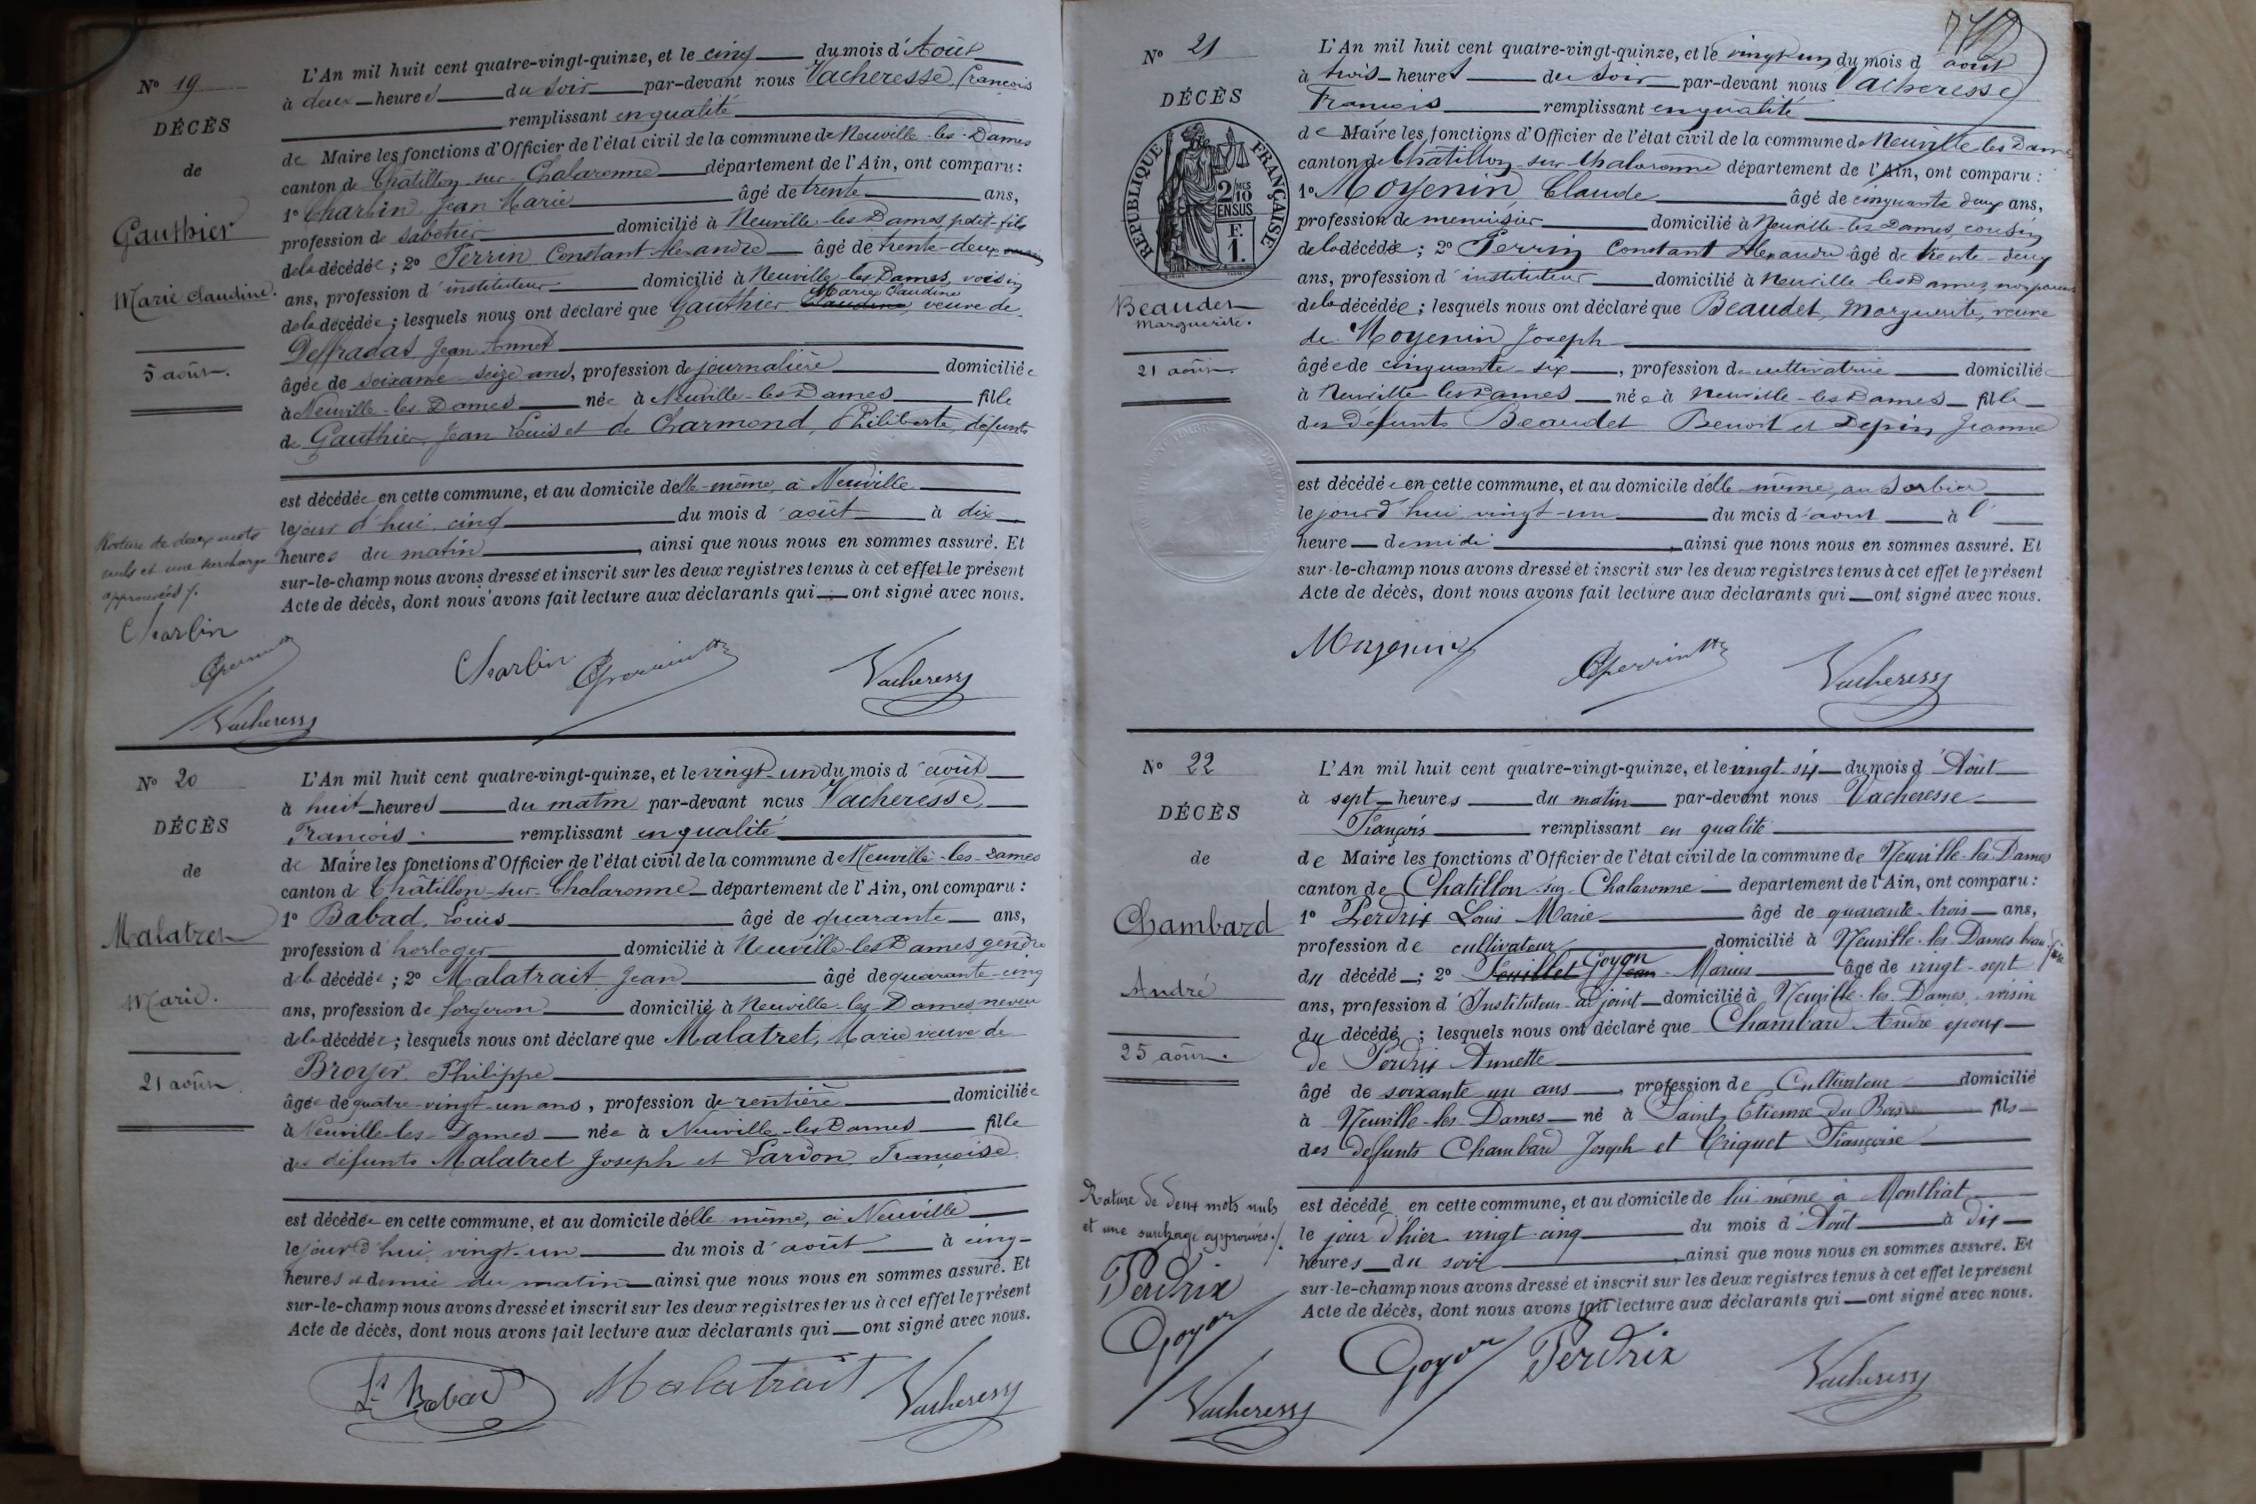 N° 19
DÉCÈS
de
Gauthier
Marie Claudine.
5 août.
L'An mil huit cent quatre-vingt-quinze, et le cinq du mois d'Août
à deux heures du soir par-devant nous Vacheresse, François
remplissant en qualité
de Maire les fonctions d'Officier de l'état civil de la commune de Neuville-les-Dames
canton de Châtillon-sur-Chalaronne département de l'Ain, ont comparu:
1° Charbin Jean Marie âgé de trente ans,
profession de sabotier domicilié à Neuville-les-Dames, petit-fils
de la décédée; 2° Perrin Constant Alexandre âgé de trente-deux
ans, profession d'instituteur domicilié à Neuville-les-Dames, voisin
de la décédée; lesquels nous ont déclaré que Gauthier Marie Claudine, veuve de
Deffradas Jean Annet
âgée de soixante-seize ans, profession de journalière domiciliée
à Neuville-les-Dames née à Neuville-les-Dames fille
de Gauthier, Jean Louis et de Charmond, Philiberte, défunts
est décédée en cette commune, et au domicile d'elle-même, à Neuville
le jour d'hui cinq du mois d'août à dix
heures du matin, ainsi que nous nous en sommes assuré. Et
sur-le-champ nous avons dressé et inscrit sur les deux registres tenus à cet effet le présent
Acte de décès, dont nous avons fait lecture aux déclarants qui ont signé avec nous.
Rature de deux mots
nuls et une surcharge
approuvées
Charbin
Vacheresse
Charbin
Vacheresse
N° 20
DÉCÈS
de
Malatret
Marie.
21 août.
L'An mil huit cent quatre-vingt-quinze, et le vingt-un du mois d'août
à huit heures du matin par-devant nous Vacheresse,
François. remplissant en qualité
de Maire les fonctions d'Officier de l'état civil de la commune de Neuville-les-Dames
canton de Châtillon-sur-Chalaronne département de l'Ain, ont comparu:
1° Babad, Louis âgé de quarante ans,
profession d'horloger domicilié à Neuville-les-Dames gendre
de la décédée; 2° Malatrait Jean âgé de quarante-cinq
ans, profession de forgeron domicilié à Neuville-les-Dames neveu
de la décédée; lesquels nous ont déclaré que Malatret, Marie veuve de
Broyer Philippe
âgée de quatre-vingt-un ans, profession de rentière domiciliée
à Neuville-les-Dames née à Neuville-les-Dames fille
des défunts Malatret Joseph et Lardon Françoise.
est décédée en cette commune, et au domicile d'elle même, à Neuville
le jour d'hui vingt-un du mois d'août à cinq
heures et demie du matin ainsi que nous nous en sommes assuré. Et
sur-le-champ nous avons dressé et inscrit sur les deux registres tenus à cet effet le présent
Acte de décès, dont nous avons fait lecture aux déclarants qui ont signé avec nous.
Ls Babad
Malatrait
Vacheresse
N° 21
DÉCÈS
RÉPUBLIQUE FRANÇAISE
2/10 MES
EN SUS
F.
1.
Beaudet
Marguerite.
21 août
L'An mil huit cent quatre-vingt-quinze, et le vingt-un du mois d'août
à trois heures du soir par-devant nous Vacheresse
François remplissant en qualité
de Maire les fonctions d'Officier de l'état civil de la commune de Neuville les Dames
canton de Châtillon-sur-Chalaronne département de l'Ain, ont comparu:
1° Moyenin Claude âgé de cinquante deux ans,
profession de menuisier domicilié à Neuville-les-Dames, cousin
de la décédée; 2° Perrin Constant Alexandre âgé de trente-deux
ans, profession d'instituteur domicilié à Neuville-les-Dames non parent
de la décédée; lesquels nous ont déclaré que Beaudet, Marguerite, veuve
de Moyenin Joseph
âgée de cinquante-six, profession de cultivatrice domiciliée
à Neuville les Dames née à Neuville-les-Dames fille
des défunts Beaudet Benoit et Depin Jeanne
est décédée en cette commune, et au domicile d'elle même, au Sorbier
le jour d'hui vingt-un du mois d'août à l'
heure de midi, ainsi que nous nous en sommes assuré. Et
sur-le-champ nous avons dressé et inscrit sur les deux registres tenus à cet effet le présent
Acte de décès, dont nous avons fait lecture aux déclarants qui ont signé avec nous.
Moyenin
Vacheresse
N° 22
DÉCÈS
de
Chambard
André
25 août.
L'An mil huit cent quatre-vingt-quinze, et le vingt-six du mois d'Août
à sept heures du matin par-devant nous Vacheresse
François remplissant en qualité
de Maire les fonctions d'Officier de l'état civil de la commune de Neuville-les-Dames
canton de Chatillon-sur-Chalaronne département de l'Ain, ont comparu:
1° Perdrix Louis Marie âgé de quarante-trois ans,
profession de cultivateur domicilié à Neuville-les-Dames beau-frère
du décédé; 2° Feuillet Jean Goyon Marius âgé de vingt-sept
ans, profession d'Instituteur-adjoint domicilié à Neuville-les-Dames, voisin
du décédé; lesquels nous ont déclaré que Chambard André époux
de Perdrix Annette
âgé de soixante un ans, profession de Cultivateur domicilié
à Neuville-les-Dames né à Saint Etienne du Bois fils
des défunts Chambard Joseph et Criquet Françoise
est décédé en cette commune, et au domicile de lui même à Monthiat
le jour d'hier vingt-cinq du mois d'Août à dix
heures du soir, ainsi que nous nous en sommes assuré. Et
sur-le-champ nous avons dressé et inscrit sur les deux registres tenus à cet effet le présent
Acte de décès, dont nous avons fait lecture aux déclarants qui ont signé avec nous.
Rature de deux mots nuls
et une surcharge approuvés
Perdrix
Goyon
Vacheresse
Goyon
Perdrix
Vacheresse